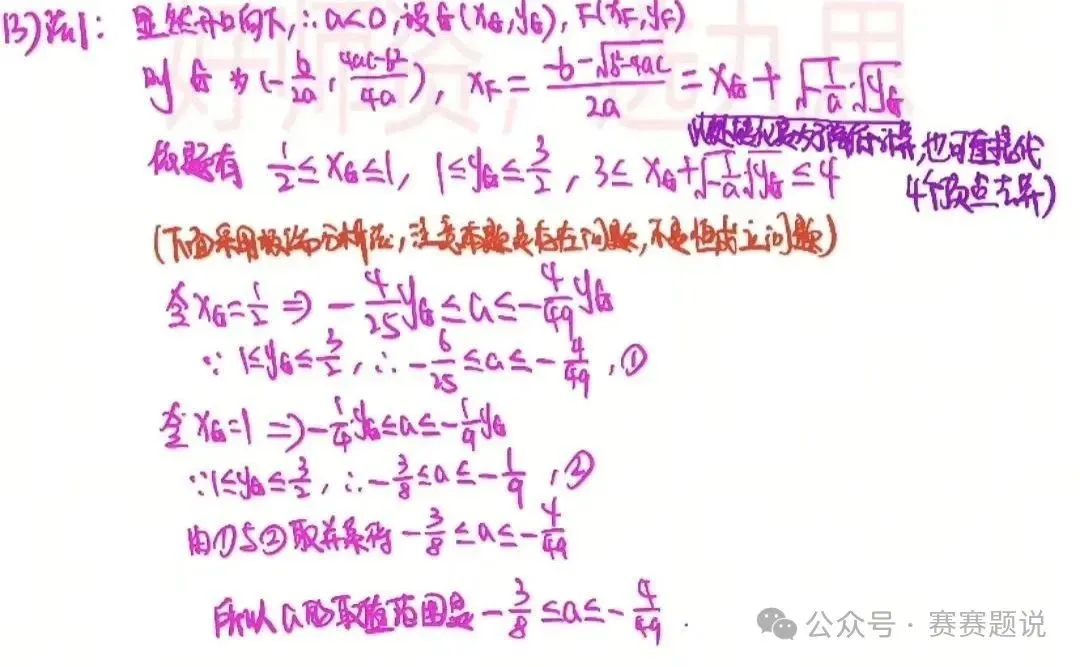 (3)法1: 显然开口向下,∴a<0,设G(x_G,y_G),F(x_F,y_F)
则G为(-b/2a, (4ac-b²)/4a), x_F = (-b-√(b²-4ac))/2a = x_G+√(-1/a)·√y_G
也可直接代
4个顶点去算)
依题有 1/2≤x_G≤1, 1≤y_G≤3/2, 3≤x_G+√(-1/a)·√y_G≤4
(下面采用极端分析法,注意本题是存在问题,不是恒成立问题)
令x_G=1/2 ⇒ -4/25 y_G≤a≤-4/49 y_G
∵1≤y_G≤3/2,∴-6/25≤a≤-4/49,①
令x_G=1 ⇒ -1/4 y_G≤a≤-1/9 y_G
∵1≤y_G≤3/2,∴-3/8≤a≤-1/9,②
由①与②取并集得 -3/8≤a≤-4/49
所以a的取值范围是 -3/8≤a≤-4/49.
公众号·赛赛题说